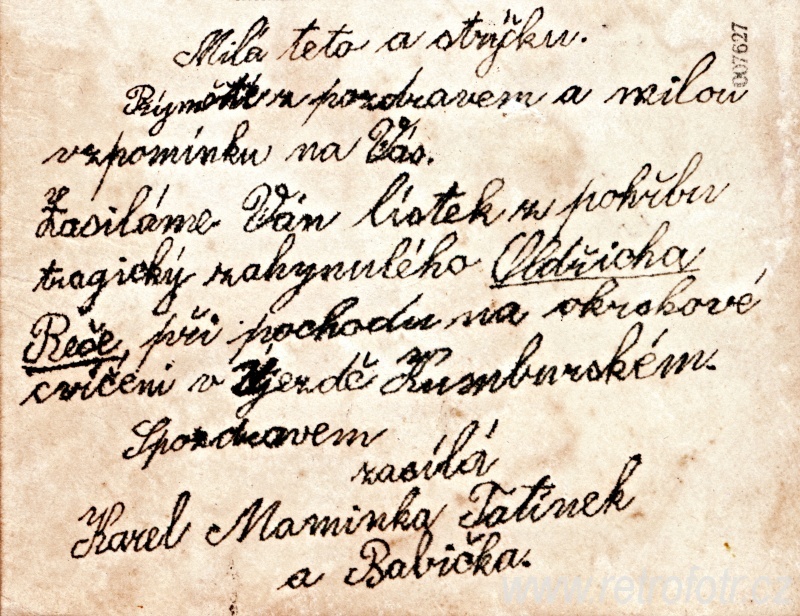 Milá teto a strýčku.
007627
z pozdravem a milou
vzpomínku na Vás.
Zasiláme Ván lístek z pohřbu
tragický zahynulého Oldřicha
Reče, při pochodu na okrskové
cvičeni v Ujezdě Kumburském.
Spozdravem
zasílá
Karel Maminka Tatínek
a Babička.
www.retrofotr.cz